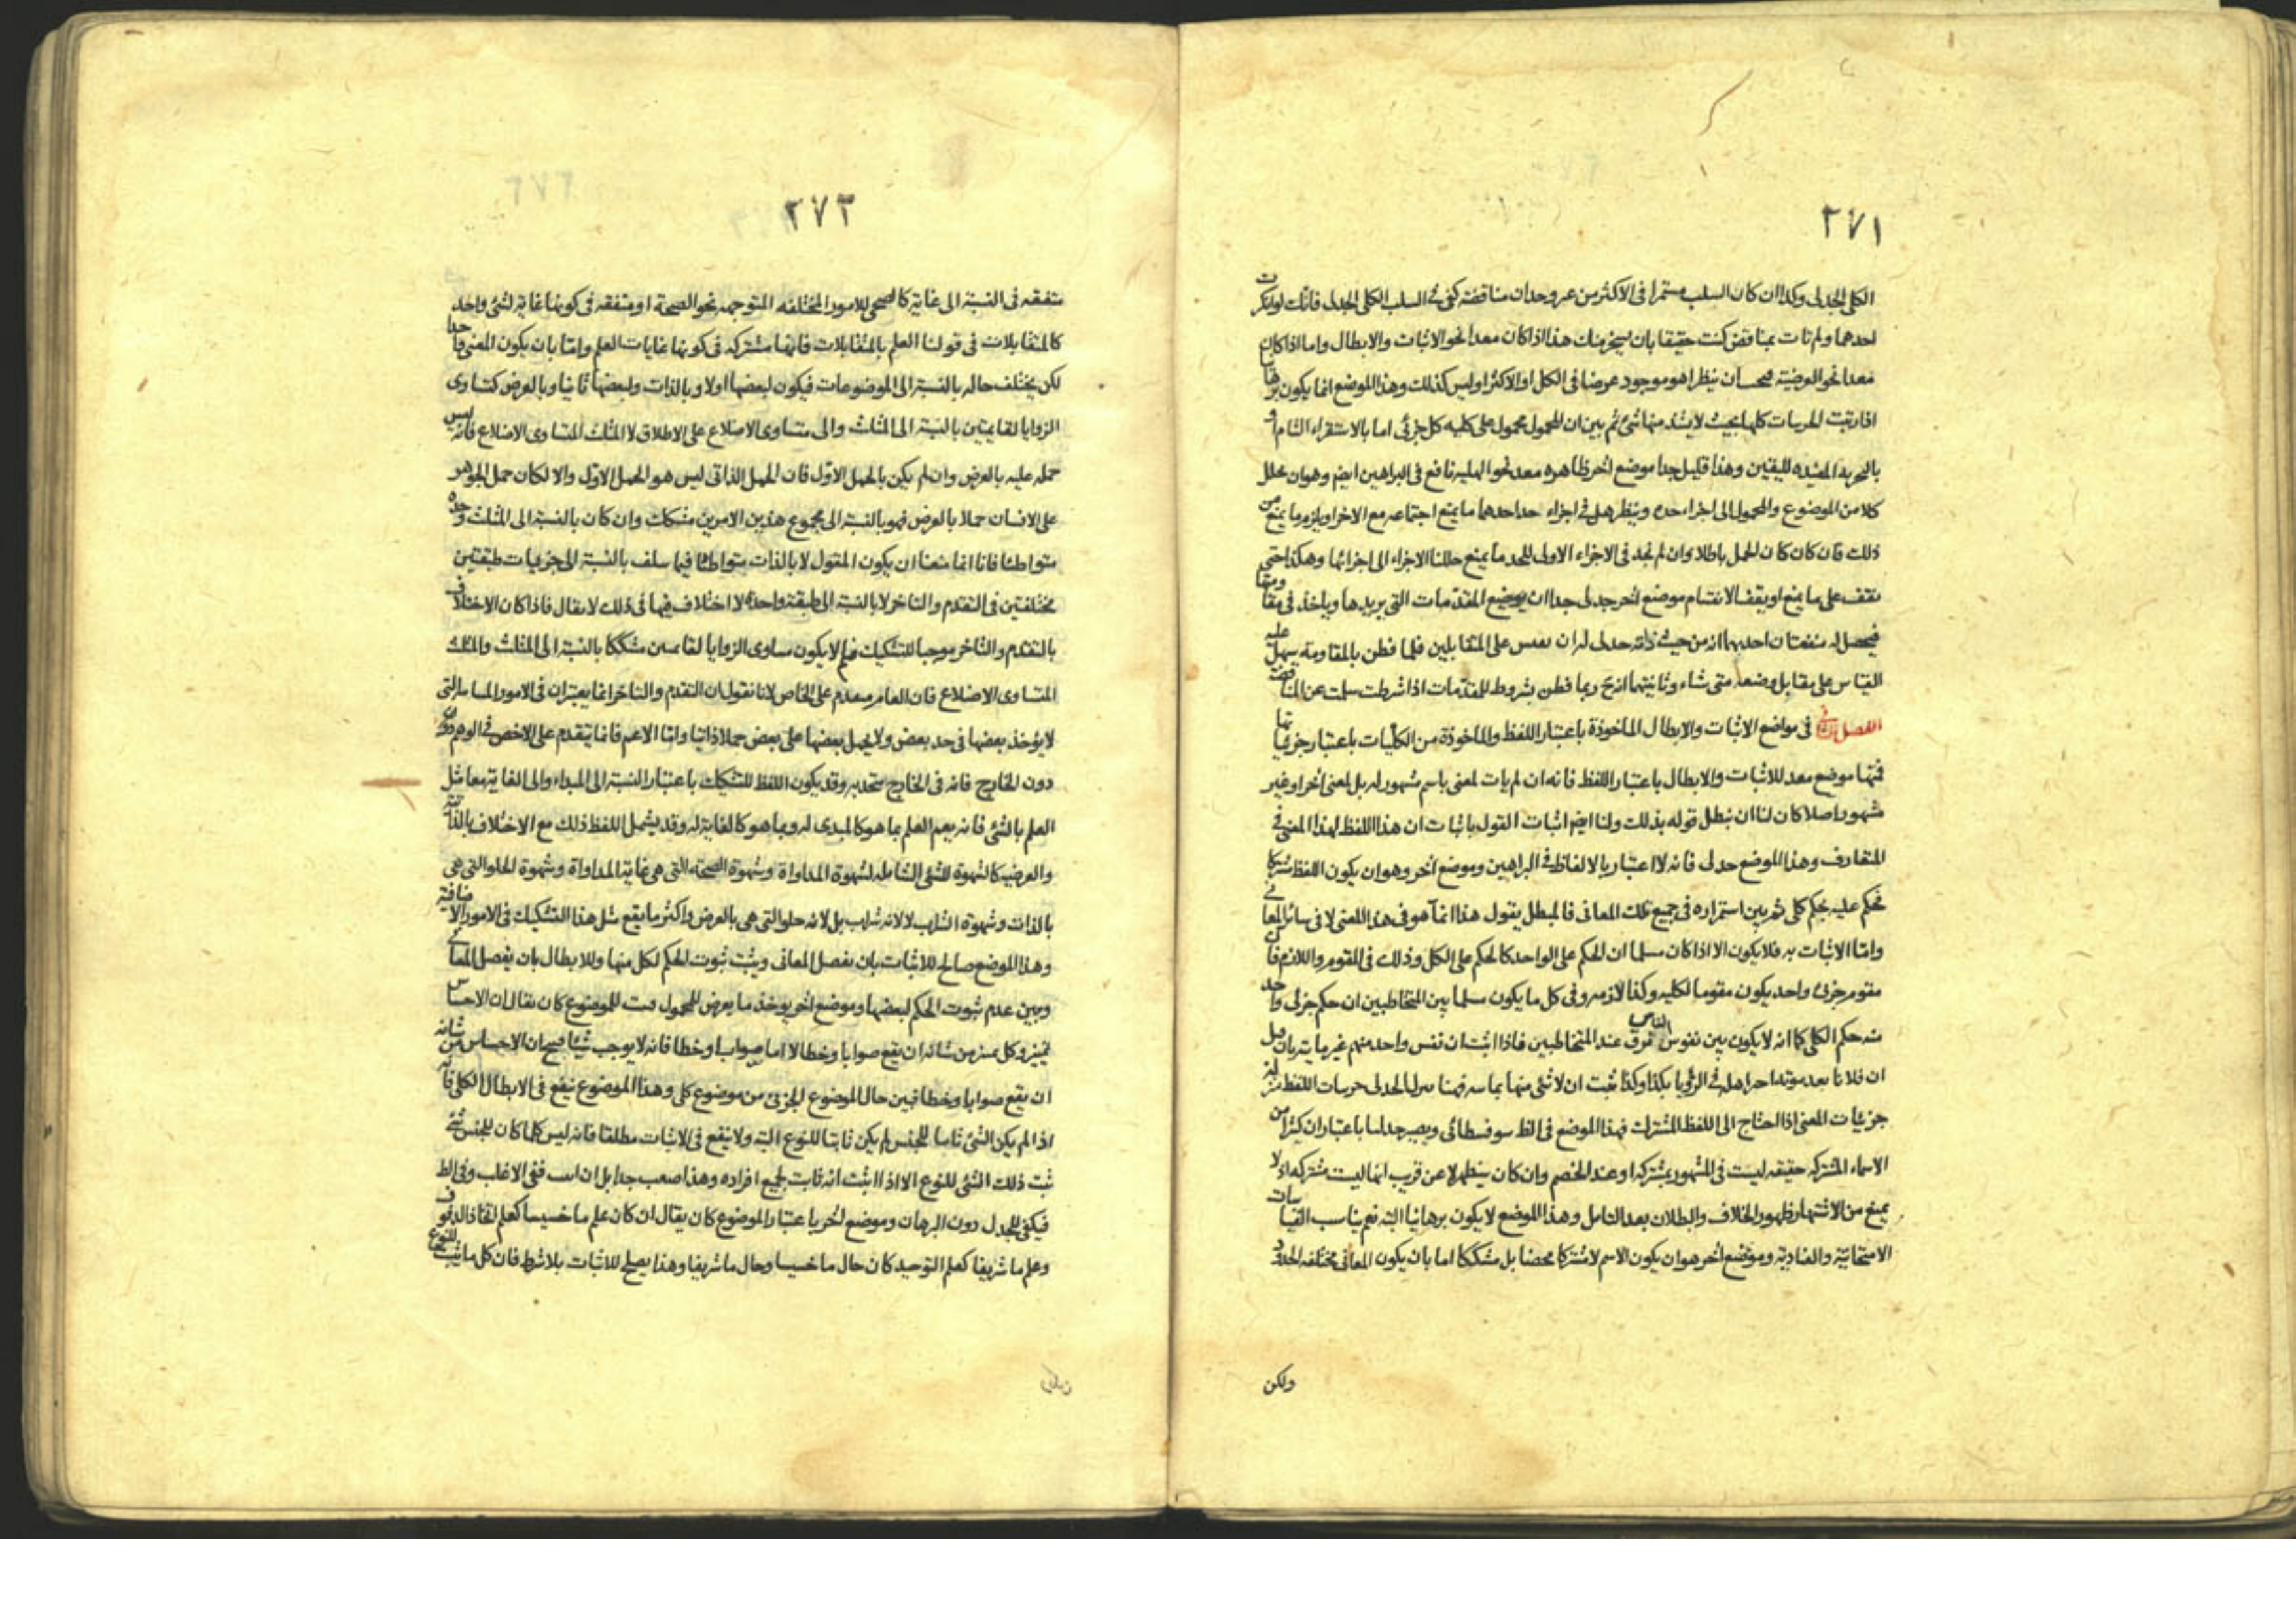 ٢٧١
الكلى الجدلى وكذا ان كان السلب مستمرا فى الاكثر من غير وجدان مناقضة كفى فى السلب الكلى الجدلى فانك لو لم تكن
احدهما ولم تات بمناقض كنت حقيقا بان يسخر منك هذا اذا كان معدا نحو الاثبات والابطال واما اذا كان
معدا نحو العرضية فيجب ان ينظر اهو موجود عرضا فى الكل او الاكثر او ليس كذلك وهذا الموضع انما يكون برهانيا
اذا رتبت الجزئيات كلها بحيث لا يشذ منها شئ ثم بين ان المحمول محمول على كليه كل جزئى اما بالاستقراء التام او
بالتجربة المفيدة لليقين وهذا قليل جدا موضع اخر ظاهره معد نحو الهلية نافع فى البراهين ايضم وهو ان يحلل
كلا من الموضوع والمحمول الى اجزاء حده وينظر هل فى اجزاء حد احدهما ما يمنع اجتماعه مع الاخر او يلزم ما يمنع من
ذلك فان كان كان الحمل باطلا وان لم نجد فى الاجزاء الاولى للحد ما يمنع حللنا الاجزاء الى اجزائها وهكذا حتى
نقف على ما يمنع او يقف الانقسام موضع اخر جدلى جدا ان يوضع المقدمات التى يريدها وياخذ فى مقاومتها
فيحصل له منفعتان احديهما انه من حيث ذاته جدلى له ان يقيس على المتقابلين فلما فطن بالمقاومة يسهل عليه
القياس على مقابل وضعه متى شاء وثانيتهما انه ح ربما فطن بشروط للمقدمات اذا شرطت سلمت عن المناقضة
الفصل الثانى فى مواضع الاثبات والابطال الماخوذة باعتبار اللفظ والماخوذة من الكليات باعتبار جزئياتها
فمنها موضع معد للاثبات والابطال باعتبار اللفظ فانه ان لم يات لمعنى باسم مشهور له بل لمعنى اخر او غير
مشهور اصلا كان لنا ان نبطل قوله بذلك ولنا ايضم اثبات القول باثبات ان هذا اللفظ لهذا المعنى فى
المتعارف وهذا الموضع جدلى فانه لا اعتبار بالالفاظ فى البراهين وموضع اخر وهو ان يكون اللفظ مشتركا
فحكم عليه بحكم كلى ثم بين استمراره فى جميع تلك المعانى فالمبطل يقول هذا انما هو فى هذا المعنى لا فى سائر المعانى
واما الاثبات به فلا يكون الا اذا كان مسلما ان الحكم على الواحد كالحكم على الكل وذلك فى المقوم واللازم فان
مقوم جزئى واحد يكون مقوما لكليه وكذا لازمه وفى كل ما يكون مسلما بين المتخاطبين ان حكم جزئى واحد
منه حكم الكلى كما انه لا يكون بين نفوس الناس فرق عند المتخاطبين فاذا اثبت ان نفس واحد منهم غير مايتة بان قيل
ان فلانا بعد موته اخبر اهله فى الرؤيا بكذا وكذا ثبت ان لا شئ منها
جزئيات المعنى اذا احتاج الى اللفظ المشترك فهذا الموضع فى الظ سوفسطائى ويصير جدليا باعتبار ان كثيرا من
الاسماء المشتركة حقيقه ليست فى المشهور بمشتركه او عند الخصم وان كان سيظهر لا عن قريب انها ليست مشتركه اذ لا
يمنع من الاشتهار ظهور الخلاف والبطلان بعد التامل وهذا الموضع لا يكون برهانيا البتة نعم يناسب القياسات
الامتحانية والعنادية وموضع اخر هو ان يكون الاسم لا مشتركا محضا بل مشككا اما بان يكون المعانى مختلفه الحدود
ولكن
٢٧٢
متفقه فى النسبة الى غاية كالصحى للامور المختلفه المتوجهه نحو الصحة او متفقه فى كونها غاية لشئ واحد
كالمتقابلات فى قولنا العلم بالمتقابلات فانها مشتركه فى كونها غايات العلم واما بان يكون المعنى واحدا
لكن يختلف حاله بالنسبة الى الموضوعات فيكون لبعضها اولا وبالذات ولبعضها ثانيا وبالعرض كتساوى
الزوايا لقايمتين بالنسبة الى المثلث والى متساوى الاضلاع على الاطلاق لا المثلث المتساوى الاضلاع فانه ليس
حمله عليه بالعرض وان لم يكن بالحمل الاول فان الحمل الذاتى ليس هو الحمل الاول والا لكان حمل الجوهر
على الانسان حملا بالعرض فهو بالنسبة الى مجموع هذين الامرين مشكك وان كان بالنسبة الى المثلث وحده
متواطئا فانا انما منعنا ان يكون المقول لا بالذات متواطئا فيما سلف بالنسبة الى جزئيات طبقتين
مختلفتين فى التقدم والتاخر لا بالنسبة الى طبقة واحدة لا اختلاف فيها فى ذلك لا يقال فاذا كان الاختلاف
بالتقدم والتاخر موجبا للتشكيك فلم لا يكون تساوى الزوايا لقايمتين مشككا بالنسبة الى المثلث والمثلث
المتساوى الاضلاع فان العام متقدم على الخاص لانا نقول ان التقدم والتاخر انما يعتبران فى الامور المتباينه التى
لا يؤخذ بعضها فى حد بعض ولا يحمل بعضها على بعض حملا ذاتيا واما الاعم فانما يتقدم على الاخص فى الوهم
دون الخارج فانه فى الخارج متحد به وقد يكون اللفظ للتشكيك باعتبار النسبة الى المبداء والى الغاية معا مثل
العلم بالشئ فانه يعم العلم بما هو كالمبدى له وبما هو كالغاية له وقد يشمل اللفظ ذلك مع الاختلاف بالذاتية
والعرضيه كالشهوة للشئ الشامله لشهوة المداواة وشهوة الصحة التى هى غاية المداواة وشهوة الحلو التى هى
بالذات وشهوة الشراب لا لانه شراب بل لانه حلو التى هى بالعرض واكثر ما يقع مثل هذا التشكيك فى الامور الاضافية
وهذا الموضع صالح للاثبات بان يفصل المعانى ويثبت ثبوت الحكم لكل منها وللابطال بان يفصل المعانى
وبين عدم ثبوت الحكم لبعضها وموضع اخر يوخذ ما يعرض للمحمول فيثبت للموضوع كان يقال ان الاحساس
تمييز وكل تمييز من شانه ان يقع صوابا وخطا لا اما صوابا وخطا فانه لا يوجب شيئا فيصح ان الاحساس من شانه
ان يقع صوابا وخطا فبين حال الموضوع الجزئى من موضوع كلى وهذا الموضوع ينفع فى الابطال الكلى فانه
اذا لم يكن الشئ ثابتا للجنس لم يكن ثابتا للنوع البتة ولا ينفع فى الاثبات مطلقا فانه ليس كلما كان للجنس شئ
ثبت ذلك الشئ للنوع الا اذا اثبت انه ثابت لجميع افراده وهذا صعب جدا بل ان اثبت ففى الاغلب وفى الظ
فيكفى للجدل دون البرهان وموضع اخر باعتبار الموضوع كان يقال ان كان علم ما خسيسا كعلم اتخاذ الدفوف
وعلم ما شريفا كعلم التوحيد كان حال ما خسيسا وحال ما شريفا وهذا يصلح للاثبات بلا شرط فان كل ما ثبت للنوع